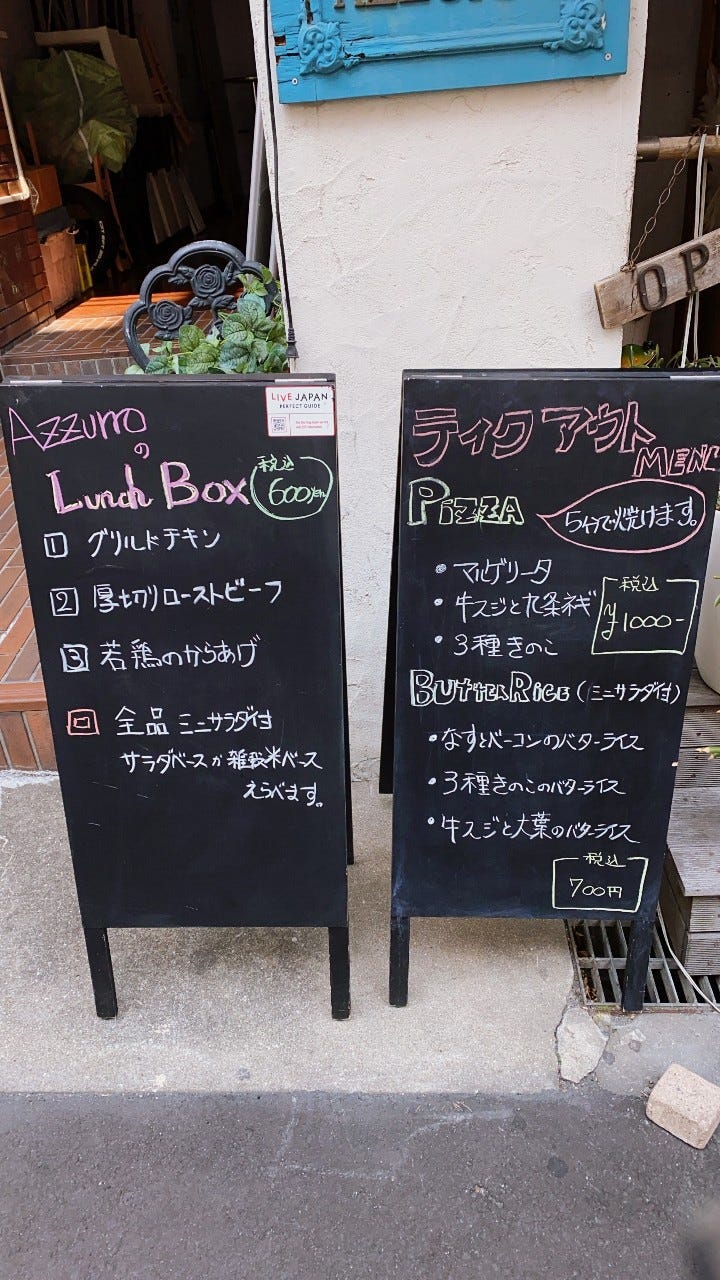 Azzurro
の
Lunch Box
税込
600yen
LIVE JAPAN
PERFECT GUIDE
1 グリルドチキン
2 厚切りローストビーフ
3 若鶏のからあげ
全品 ミニサラダ付
サラダベースか雑穀米ベース
えらべます。
OP
テイクアウト
MENU
PIZZA
5分で焼けます。
・マルゲリータ
・牛スジと九条ネギ
・3種きのこ
税込
¥1000-
BUTTER RICE (ミニサラダ付)
・なすとベーコンのバターライス
・3種きのこのバターライス
・牛スジと大葉のバターライス
税込
700円